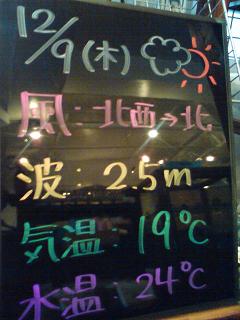 12/9(木)
風:北西→北
波:2.5m
気温:19℃
水温:24℃